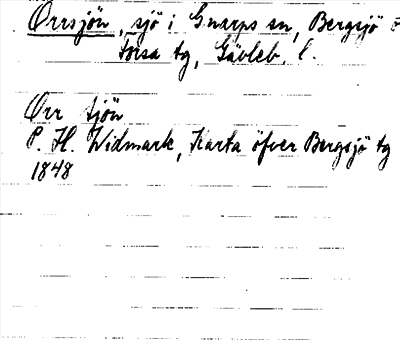 Orrsjön, sjö i Gnarps sn, Bergsjö o
Forsa tg, Gävleb. l.
Orr sjön
P. H. Widmark, Karta öfver Bergsjö tg
1848